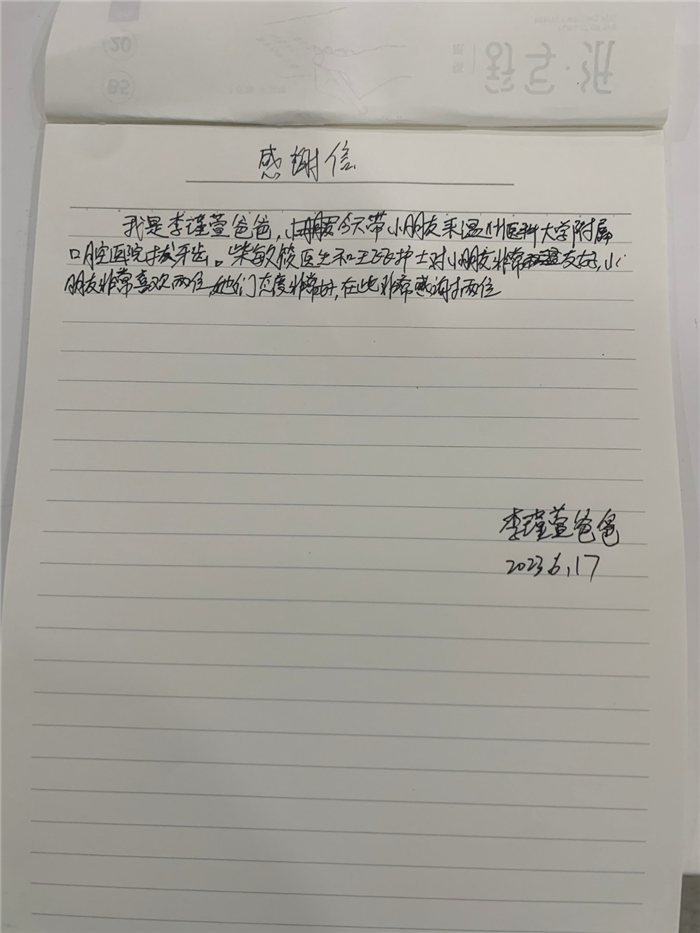 感谢信
我是李瑾萱爸爸，今天带小朋友来温州医科大学附属
口腔医院拔牙齿。柴敏锁医生和王砭护士对小朋友非常友好，小
朋友非常喜欢两位，她们态度非常好，在此非常感谢两位
李瑾萱爸爸
2023.6.17
B5
20